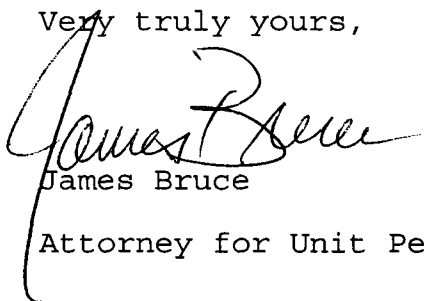 Very truly yours,
James Bruce
James Bruce
Attorney for Unit Pe